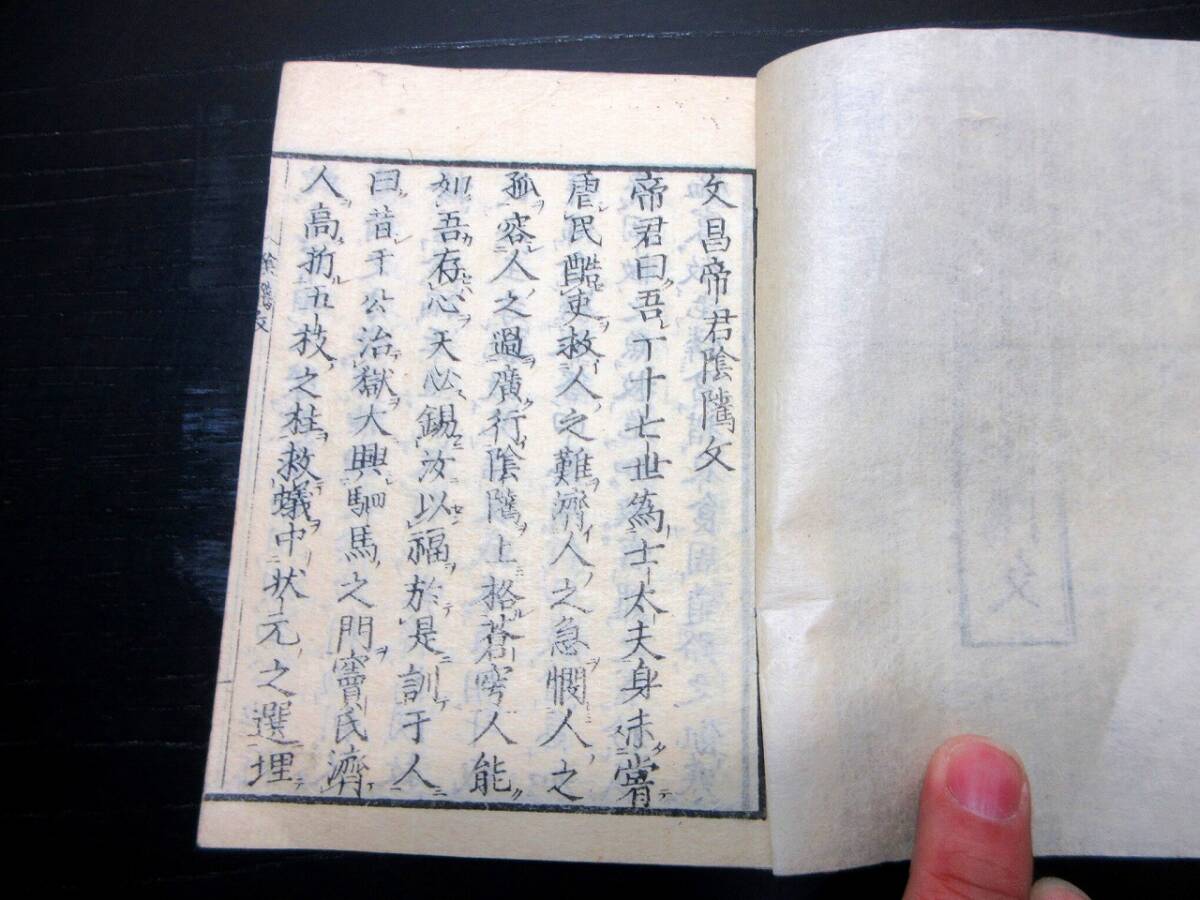 文昌帝君陰隲文
帝君曰吾一十七世為士大夫身未甞
虐民酷吏救人之難濟人之急憫人之
孤容人之過廣行陰隲上格蒼穹人能
如吾存心天必錫汝以福於是訓于人
曰昔于公治獄大興駟馬之門竇氏濟
人高折五枝之桂救蟻中状元之選埋
陰隲文